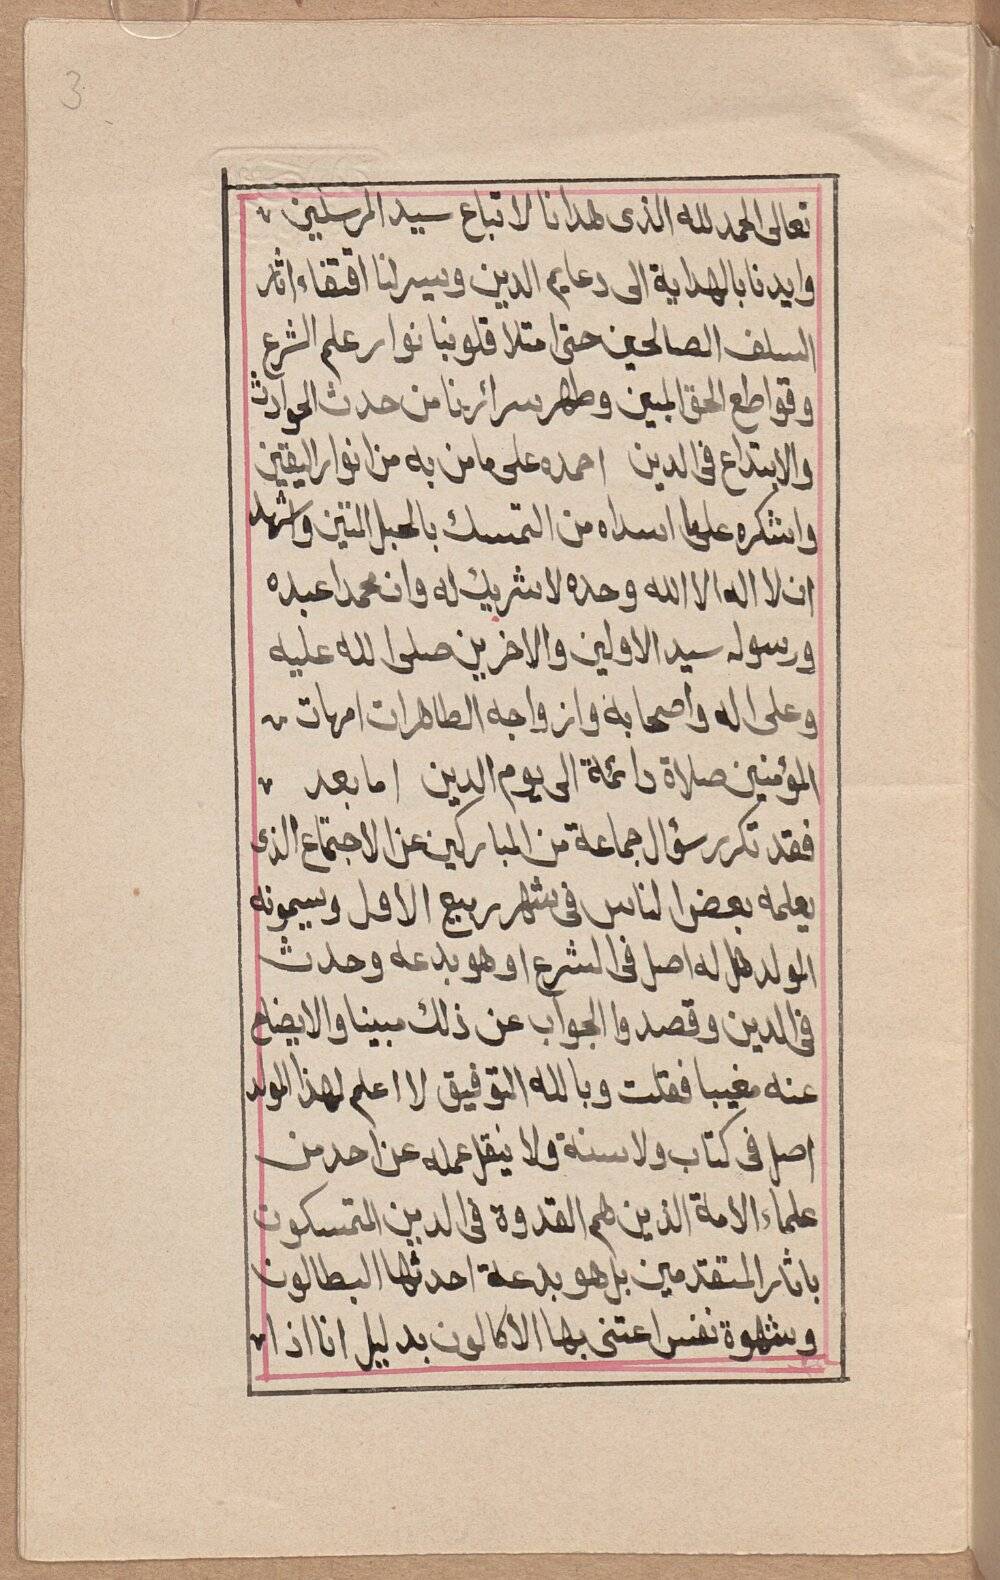 3
تعالى الحمد لله الذى هدانا لاتباع سيد المرسلين
وايدنا بالهداية الى دعايم الدين ويسر لنا اقتفاء اثار
السلف الصالحين حتى امتلا قلوبنا بانوار علم الشرع
وقواطع الحق المبين وطهر سرائرنا من حدث الحوادث
والابتداع فى الدين احمده على ما من به من انوار اليقين
واشكره على ما اسداه من التمسك بالحبل المتين واشهد
ان لا اله الا الله وحده لا شريك له وان محمدا عبده
ورسوله سيد الاولين والاخرين صلى الله عليه
وعلى اله واصحابه وازواجه الطاهرات امهات
المؤمنين صلاة دائمة الى يوم الدين اما بعد
فقد تكرر سؤال جماعة من المباركين عن الاجتماع الذى
يعلمه بعض الناس فى شهر ربيع الاول ويسمونه
المولد هل له اصل فى الشرع او هو بدعه وحدث
فى الدين وقصدوا الجواب عن ذلك مبينا والايضاح
عنه مغيبا فقلت وبالله التوفيق لا اعلم لهذا المولد
اصل فى كتاب ولا سنة ولا ينقل عمله عن احد من
علماء الامة الذين هم القدوة فى الدين المتمسكون
باثار المتقدمين بل هو بدعة احدثها البطالون
وشهوة نفس اعتنى بها الاكالون بدليل انا اذا